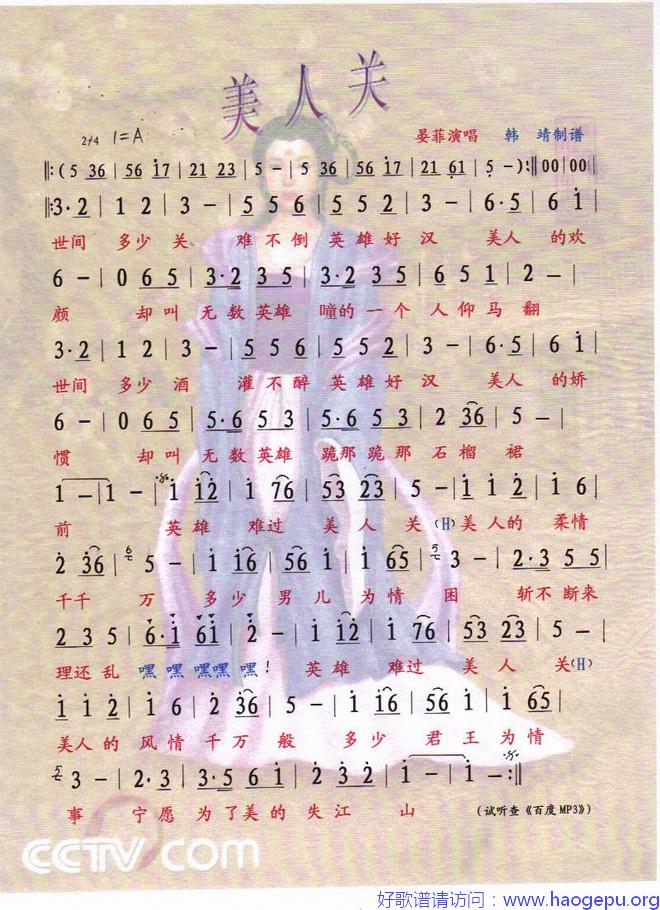 美人关
2/4 1=A
晏菲演唱 韩 靖制谱
‖:(5 36 | 56 i7 | 21 23 | 5 - | 5 36 | 56 i7 | 21 61 | 5 - ):‖ 00 | 00 |
‖:3·2 | 1 2 | 3 - | 5 5 6 | 5 5 2 | 3 - | 6·5 | 6 i |
世间 多少 关、 难 不 倒 英 雄 好 汉 美人 的欢
6 - | 0 6 5 | 3·2 3 5 | 3·2 3 5 | 6 5 1 | 2 - |
颜 却 叫 无 数 英雄 瞳的 一 个 人 仰 马 翻
3·2 | 1 2 | 3 - | 5 5 6 | 5 5 2 | 3 - | 6·5 | 6 i |
世间 多少 酒 灌 不 醉 英 雄 好 汉 美人 的娇
6 - | 0 6 5 | 5·6 5 3 | 5·6 5 3 | 2 36 | 5 - |
惯 却 叫 无 数 英雄 跪那 跪 那 石 榴 裙
1 - | 1 - | i i2 | i 76 | 53 23 | 5 - | i i 2 | i 6 |
前 英 雄 难过 美 人 关 (H) 美 人的 柔情
2 36 | 5 - | i i6 | 56 i | i 65 | 3 - | 2·3 5 5 |
千千 万 多 少 男 儿 为 情 困 斩不 断来
2 3 5 | 6·i 6i | 2 - | i i2 | i 76 | 53 23 | 5 - |
理还 乱 嘿 嘿 嘿嘿 嘿! 英 雄 难过 美 人 关(H)
i i 2 | i 6 | 2 36 | 5 - | i i6 | 56 i | i 65 |
美人 的 风 情 千 万 般 多 少 君 王 为 情
3 - | 2·3 | 3·5 6 i | 2 3 2 | i - | i - :‖
事 宁愿 为 了美 的 失 江 山 (试听查《百度MP3》)
CCTV com
好歌谱请访问：www.haogepu.org